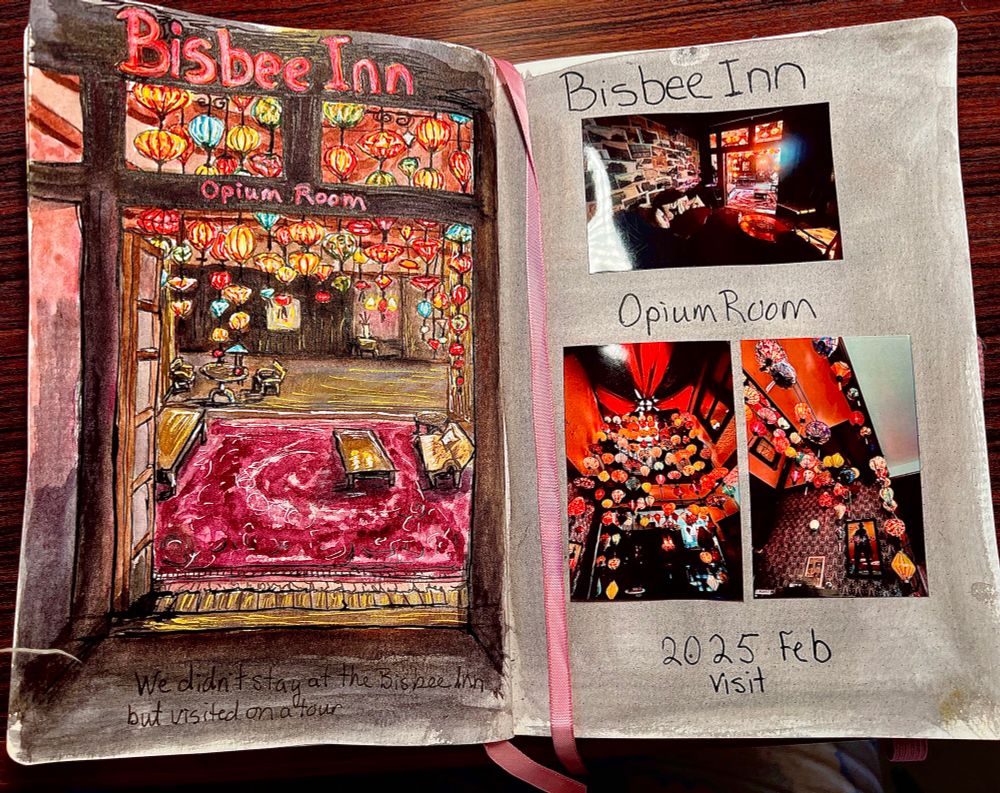 Bisbee Inn
Opium Room
We didn't stay at the Bisbee Inn
but visited on a tour
Bisbee Inn
Opium Room
2025 Feb
Visit